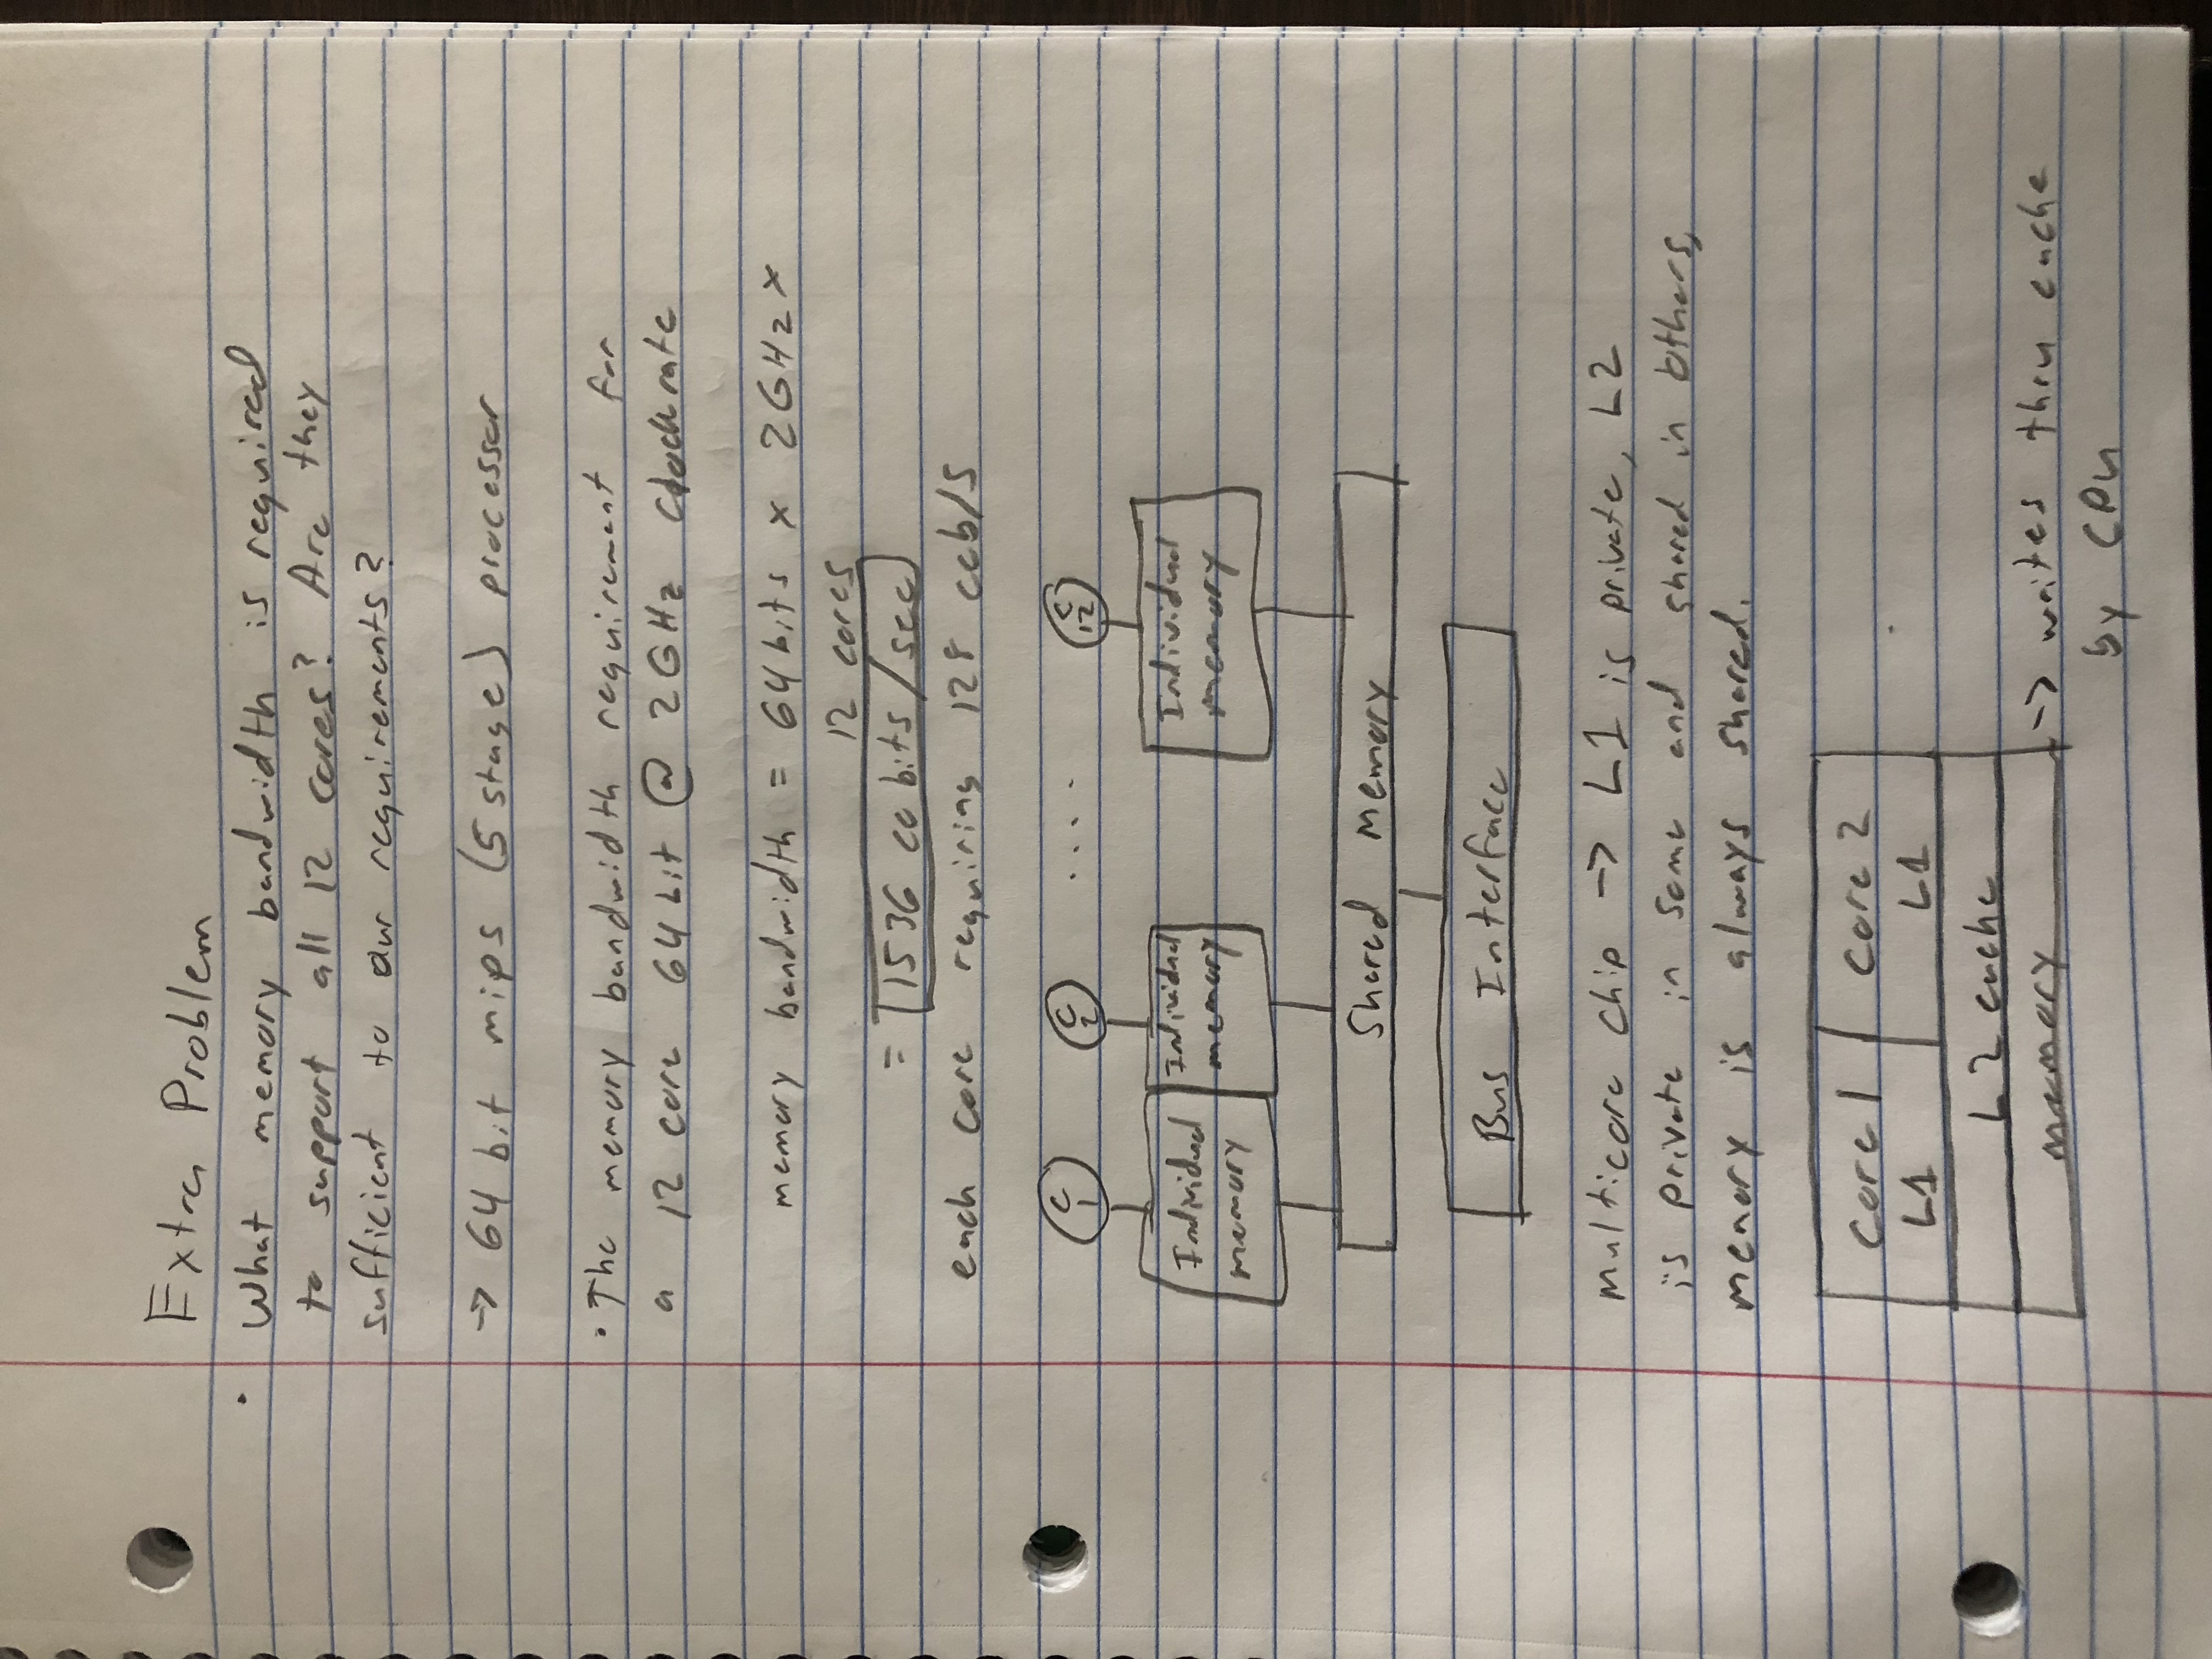 Extra Problem
· What memory bandwidth is required
to support all 12 cores? Are they
sufficient to our requirements?
→ 64 bit mips (5 stage) processor
· The memory bandwidth requirement for
a 12 core 64 bit @ 2GHz clockrate
memory bandwidth = 64 bits x 2GHz x
12 cores
= 1536 bits/sec
each core requiring 128
C1 C2 .... C12
Individual Individual Individual
memory memory memory
Shared Memory
Bus Interface
Multicore chip → L1 is private, L2
is private in some and shared in others,
memory is always shared.
Core 1 Core 2
L1 L1
L2 cache
memory → writes thru cache
by CPU